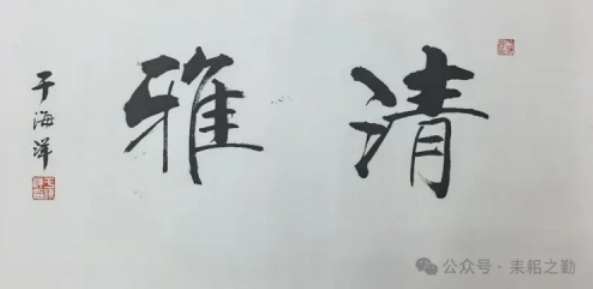 清雅
于海洋
公众号·耒耜之勤